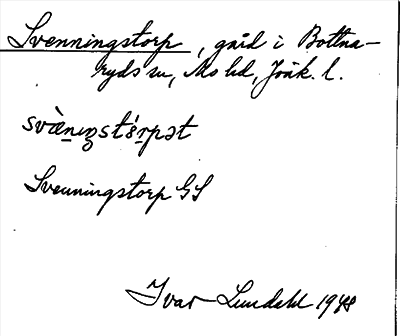 Svenningstorp, gård i Bottna-
ryds sn, Mo hd, Jönk. l.
svæ̀nıŋstɔ́rpət
Svenningstorp GS
Ivar Lundahl 1948